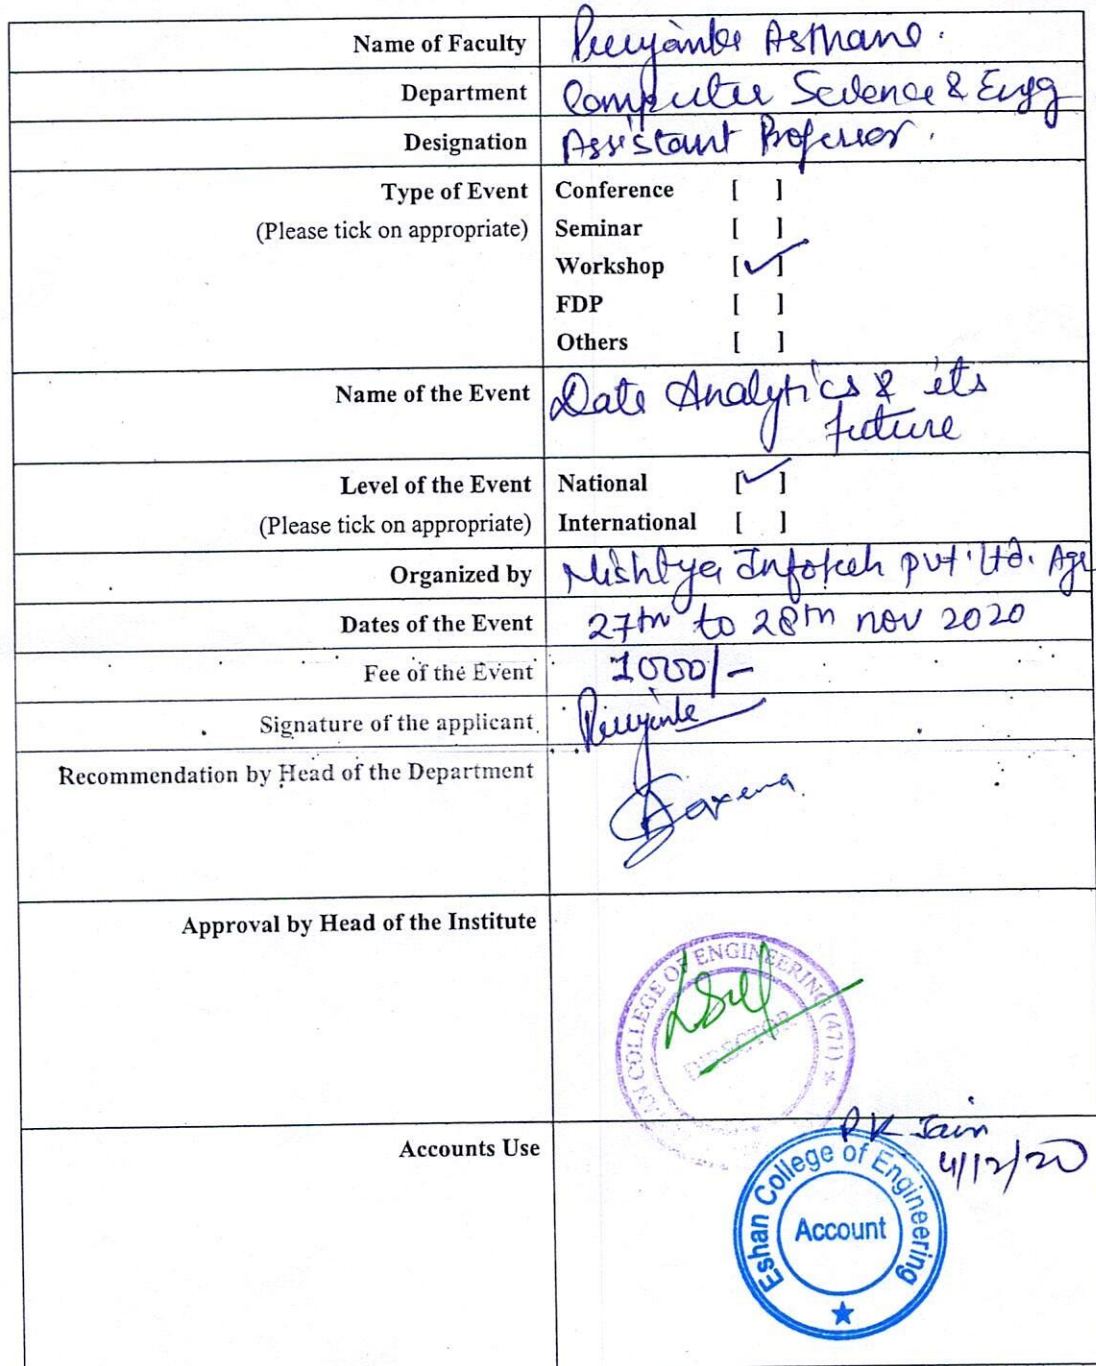 Name of Faculty Priyanka Asthana.
Department Computer Science & Engg
Designation Assistant Professor.
Type of Event Conference [ ]
(Please tick on appropriate) Seminar [ ]
Workshop [✓]
FDP [ ]
Others [ ]
Name of the Event Data Analytics & its
future
Level of the Event National [✓]
(Please tick on appropriate) International [ ]
Organized by Infotech pvt. Ltd. Agr
Dates of the Event 27th to 28th nov 2020
Fee of the Event 1000/-
Signature of the applicant Priyanka
Recommendation by Head of the Department Saxena
Approval by Head of the Institute
AN COLLEGE OF ENGINEERING (471) *
DIRECTOR
PK Jain
4/12/20
Accounts Use
Eshan College of Engineering
Account